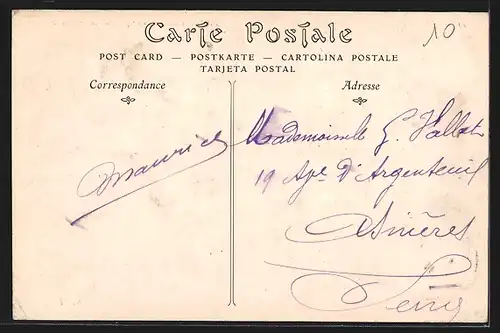 Carte Postale
10
POST CARD — POSTKARTE — CARTOLINA POSTALE
TARJETA POSTAL
Correspondance
Adresse
Maurice
Mademoiselle G.
19 d'Argenteuil
Asnières
Seine